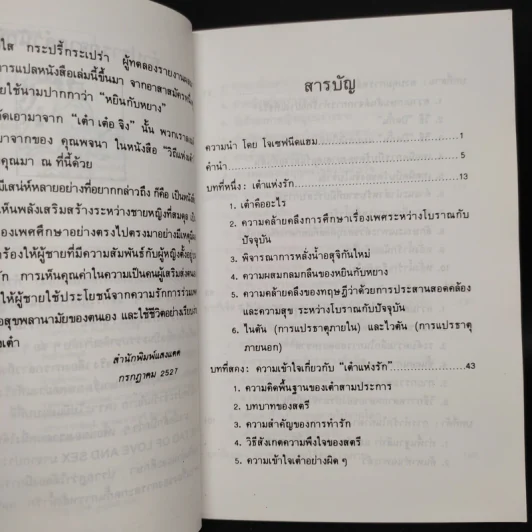 ใส กระปรี้กระเปร่า ผู้ทดลองรายงานผล
การแปลหนังสือเล่มนี้ขึ้นมา จากอาสาสมัคร
ยใช้นามปากกาว่า "หยินกับหยาง"
จาก "เต๋า เต๋อ จิง" นั้น
มาจากของ คุณพจนา ในหนังสือ
คุณมา ณ ที่นี้ด้วย
มีเสน่ห์หลายอย่างที่อยากกล่าวถึง ก็คือ
เห็นพลังเสริมสร้างระหว่างชายหญิงที่สมดุล
องเพศศึกษาอย่างตรงไปตรงมาอย่างมี
ร้องให้ผู้ชายที่มีความสัมพันธ์กับผู้หญิง
รัก การเห็นคุณค่าในความเป็นคนผู้
ให้ผู้ชายใช้ประโยชน์จากความรักการร่วม
สุขพลานามัยของตนเอง และใช้ชีวิตอย่าง
เต๋า
สำนักพิมพ์แสงแดด
กรกฎาคม 2527
OF LOVE AND SEX
สารบัญ
ความนำ โดย โจเซฟนีดแฮม 1
คำนำ 5
บทที่หนึ่ง : เต๋าแห่งรัก 13
1. เต๋าคืออะไร
2. ความคล้ายคลึงการศึกษาเรื่องเพศระหว่างโบราณกับ
ปัจจุบัน
3. พิจารณาการหลั่งน้ำอสุจิกันใหม่
4. ความผสมกลมกลืนของหยินกับหยาง
5. ความคล้ายคลึงของทฤษฎีว่าด้วยการประสานสอดคล้อง
และความสุข ระหว่างโบราณกับปัจจุบัน
6. ในตัน (การแปรธาตุภายใน) และไวตัน (การแปรธาตุ
ภายนอก)
บทที่สอง : ความเข้าใจเกี่ยวกับ "เต๋าแห่งรัก" 43
1. ความคิดพื้นฐานของเต๋าสามประการ
2. บทบาทของสตรี
3. ความสำคัญของการทำรัก
4. วิธีสังเกตความพึงใจของสตรี
5. ความเข้าใจเต๋าอย่างผิด ๆ